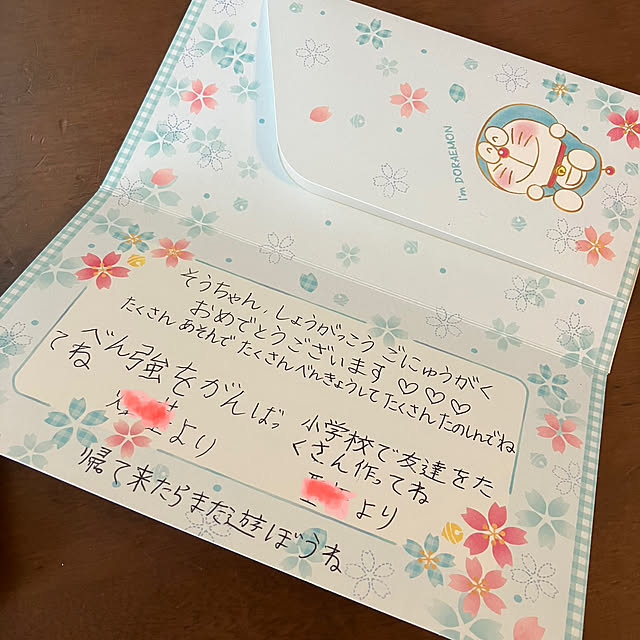 I'm DORAEMON
そうちゃん、しょうがっこう ごにゅうがく
おめでとうございます ♡♡♡
たくさん あそんで たくさんべんきょうして たくさん たのしんでね
べん強をがんばっ
てね
より
小学校で友達をた
くさん作ってね
より
帰て来たらまた遊ぼうね